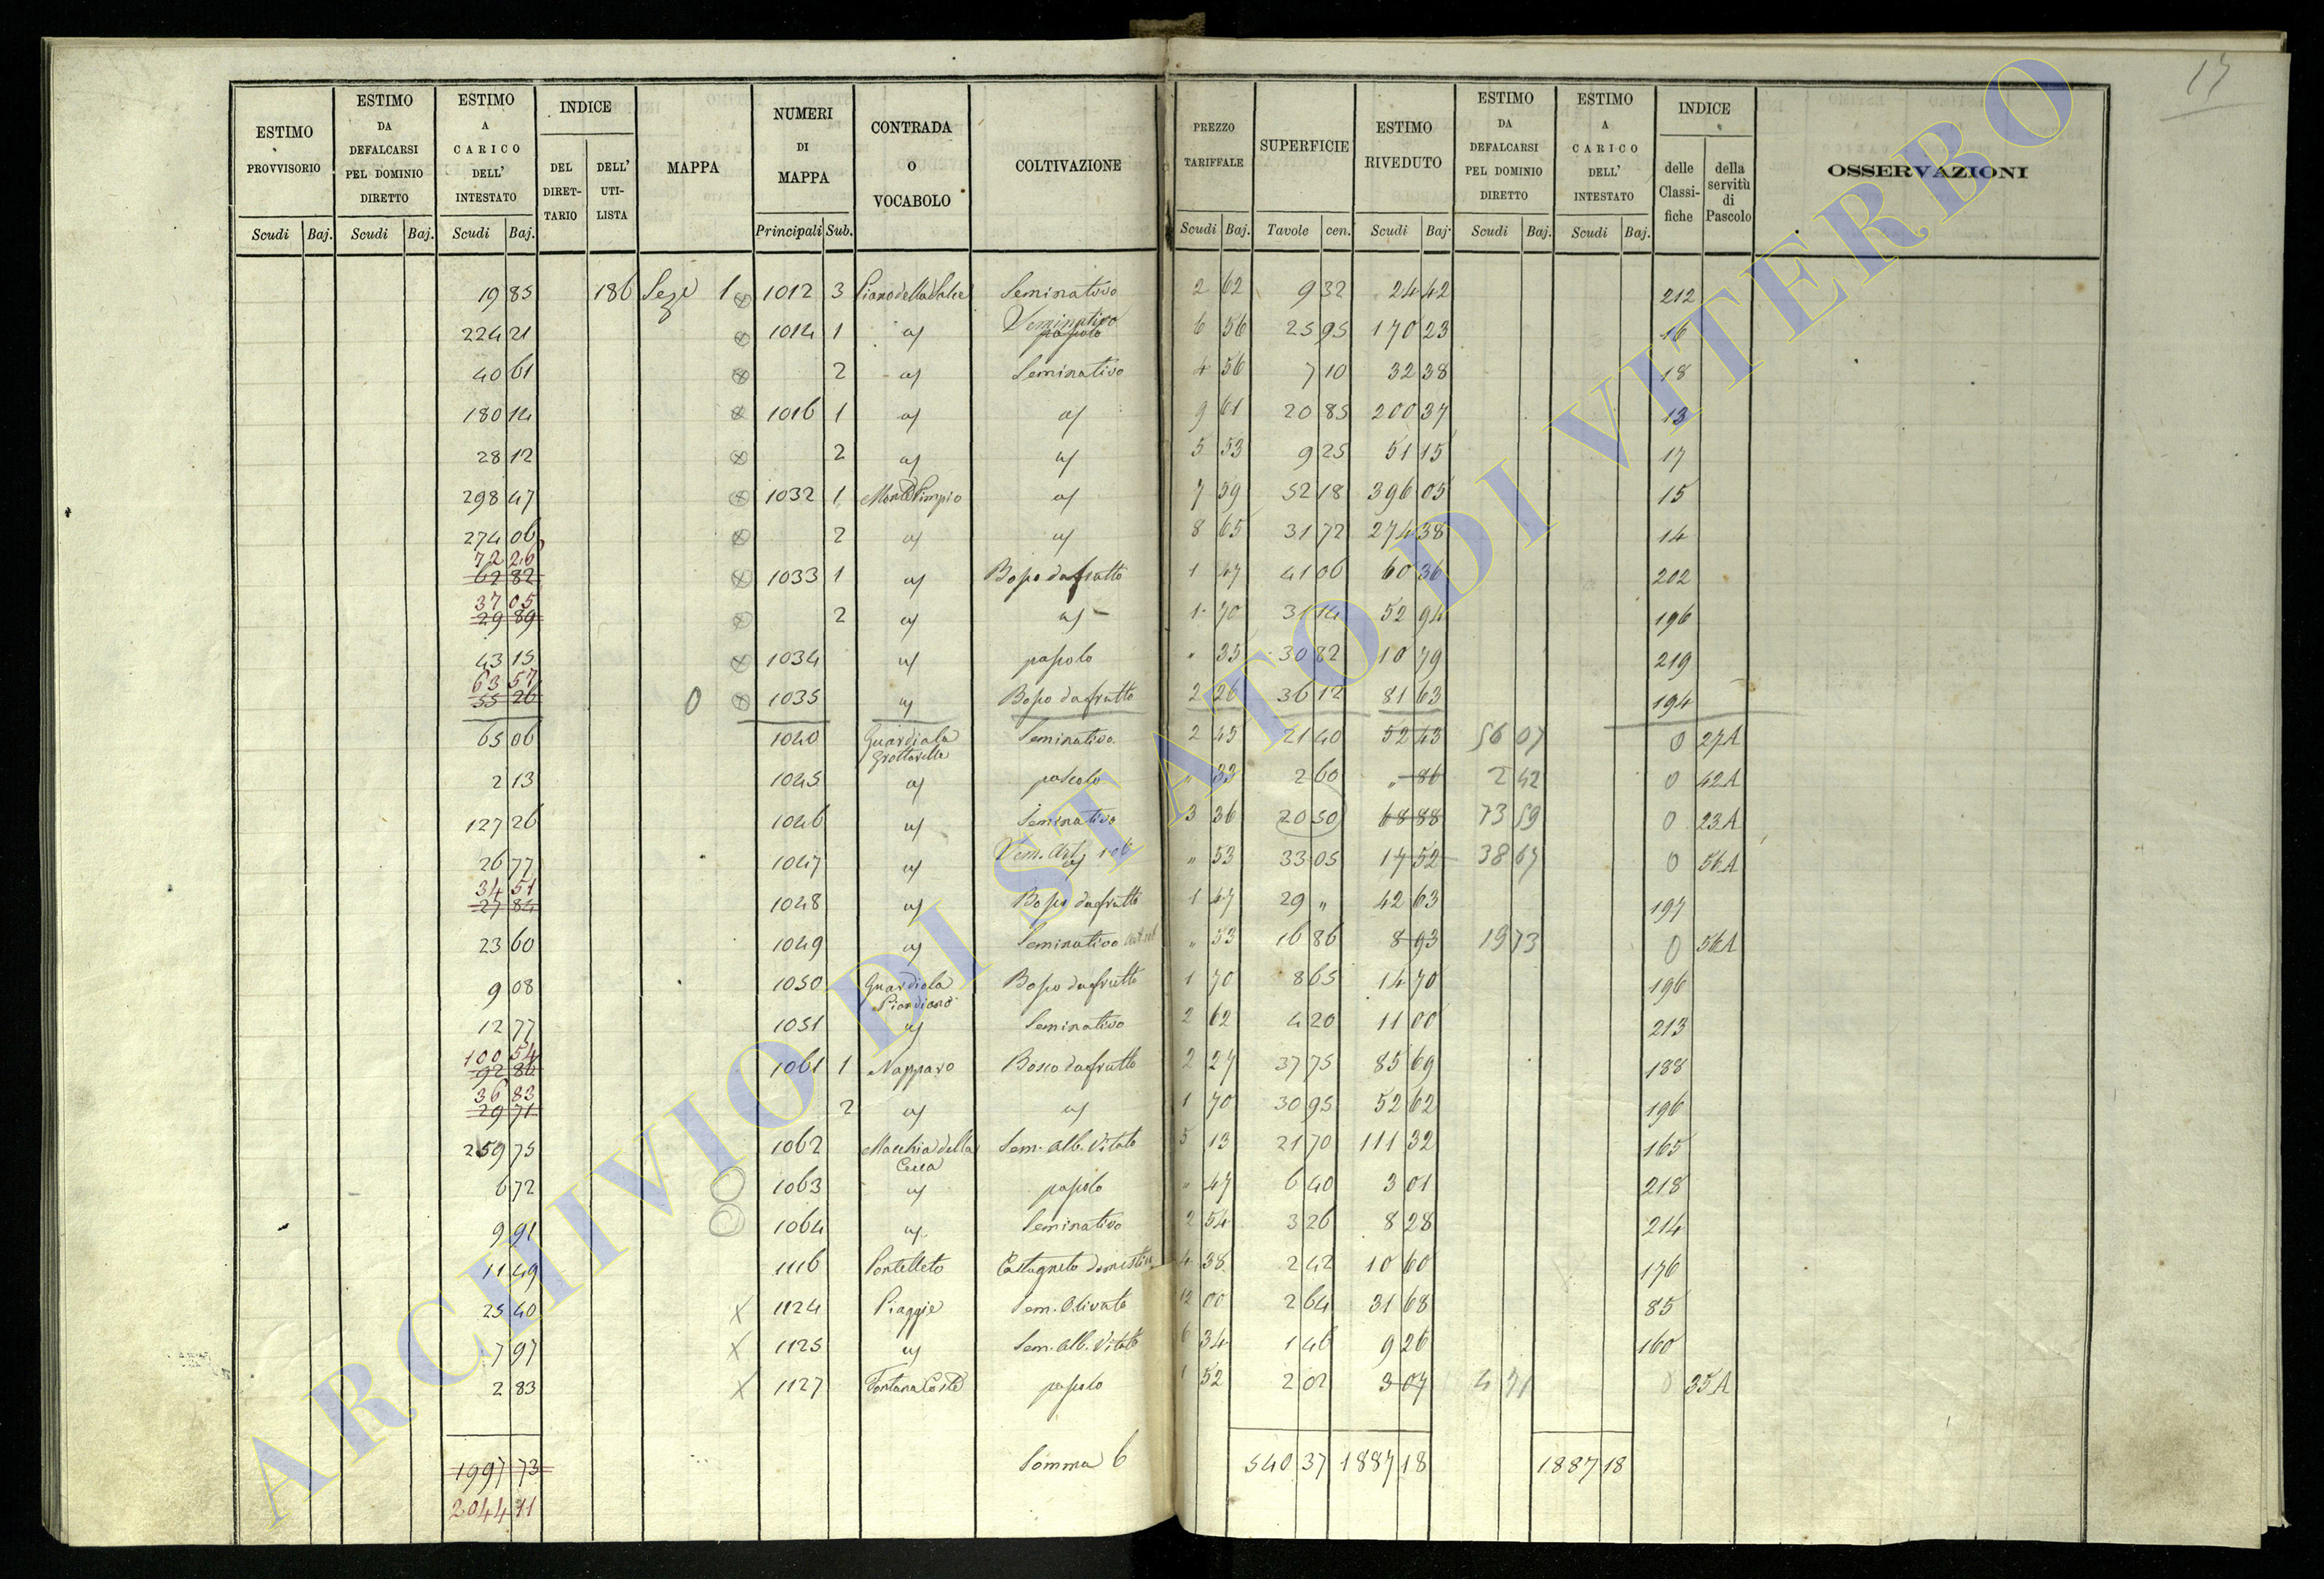 17
ESTIMO PROVVISORIO
ESTIMO DA DEFALCARSI PEL DOMINIO DIRETTO
ESTIMO A CARICO DELL' INTESTATO
INDICE
DEL DIRET-TARIO
DELL' UTI-LISTA
MAPPA
NUMERI DI MAPPA
CONTRADA O VOCABOLO
COLTIVAZIONE
PREZZO TARIFFALE
SUPERFICIE
ESTIMO RIVEDUTO
ESTIMO DA DEFALCARSI PEL DOMINIO DIRETTO
ESTIMO A CARICO DELL' INTESTATO
INDICE
delle Classi-fiche
della servitù di Pascolo
OSSERVAZIONI
Scudi Baj. Scudi Baj. Scudi Baj. Principali Sub. Scudi Baj. Tavole cen. Scudi Baj. Scudi Baj. Scudi Baj.
19 85 186 1 1012 3 Seminativo 2 62 9 32 24 42 212
224 21 1014 1 Seminativo 6 56 25 95 170 23 16
40 61 2 Seminativo 4 56 7 10 32 38 18
180 14 1016 1 9 61 20 85 200 37 13
28 12 2 5 53 9 25 51 15 17
298 47 1032 1 7 59 52 18 396 05 15
274 06 2 8 65 31 72 274 38 14
72 26
62 82 1033 1 Bosco da frutto 1 47 41 06 60 36 202
37 05
29 89 2 1 70 31 14 52 94 196
43 15 1034 pascolo " 35 30 82 10 79 219
63 57
55 26 0 1035 Bosco da frutto 2 26 36 12 81 63 194
65 06 1040 Guardiola Grottarella Seminativo 2 45 21 40 52 43 56 07 0 27A
2 13 1045 pascolo " 33 2 60 " 86 2 42 0 42A
127 26 1046 Seminativo 3 36 20 50 68 88 73 59 0 23A
26 77 1047 " 53 33 05 17 52 38 67 0 56A
34 51
27 84 1048 Bosco da frutto 1 47 29 " 42 63 197
23 60 1049 Seminativo " 53 16 86 8 93 19 73 0 56A
9 08 1050 Guardiola Bosco da frutto 1 70 8 65 14 70 196
12 77 1051 Seminativo 2 62 4 20 11 00 213
100 54
92 86 1061 1 Napparo Bosco da frutto 2 27 37 75 85 69 188
36 83
29 71 2 1 70 30 95 52 62 196
259 75 1062 Macchia della Cerca Sem. Alb. Vitato 5 13 21 70 111 32 165
6 72 1063 pascolo " 47 6 40 3 01 218
9 91 1064 Seminativo 2 54 3 26 8 28 214
11 49 1116 Pontelleto Castagneto domestico 4 38 2 42 10 60 176
25 40 X 1124 Piaggie Sem. Olivato 12 00 2 64 31 68 85
7 97 X 1125 Sem. Alb. Vitato 6 34 1 46 9 26 160
2 83 X 1127 pascolo 1 52 2 02 3 07 35A
1997 73 Somma 6 540 37 1887 18 1887 18
2044 11
ARCHIVIO DI STATO DI VITERBO